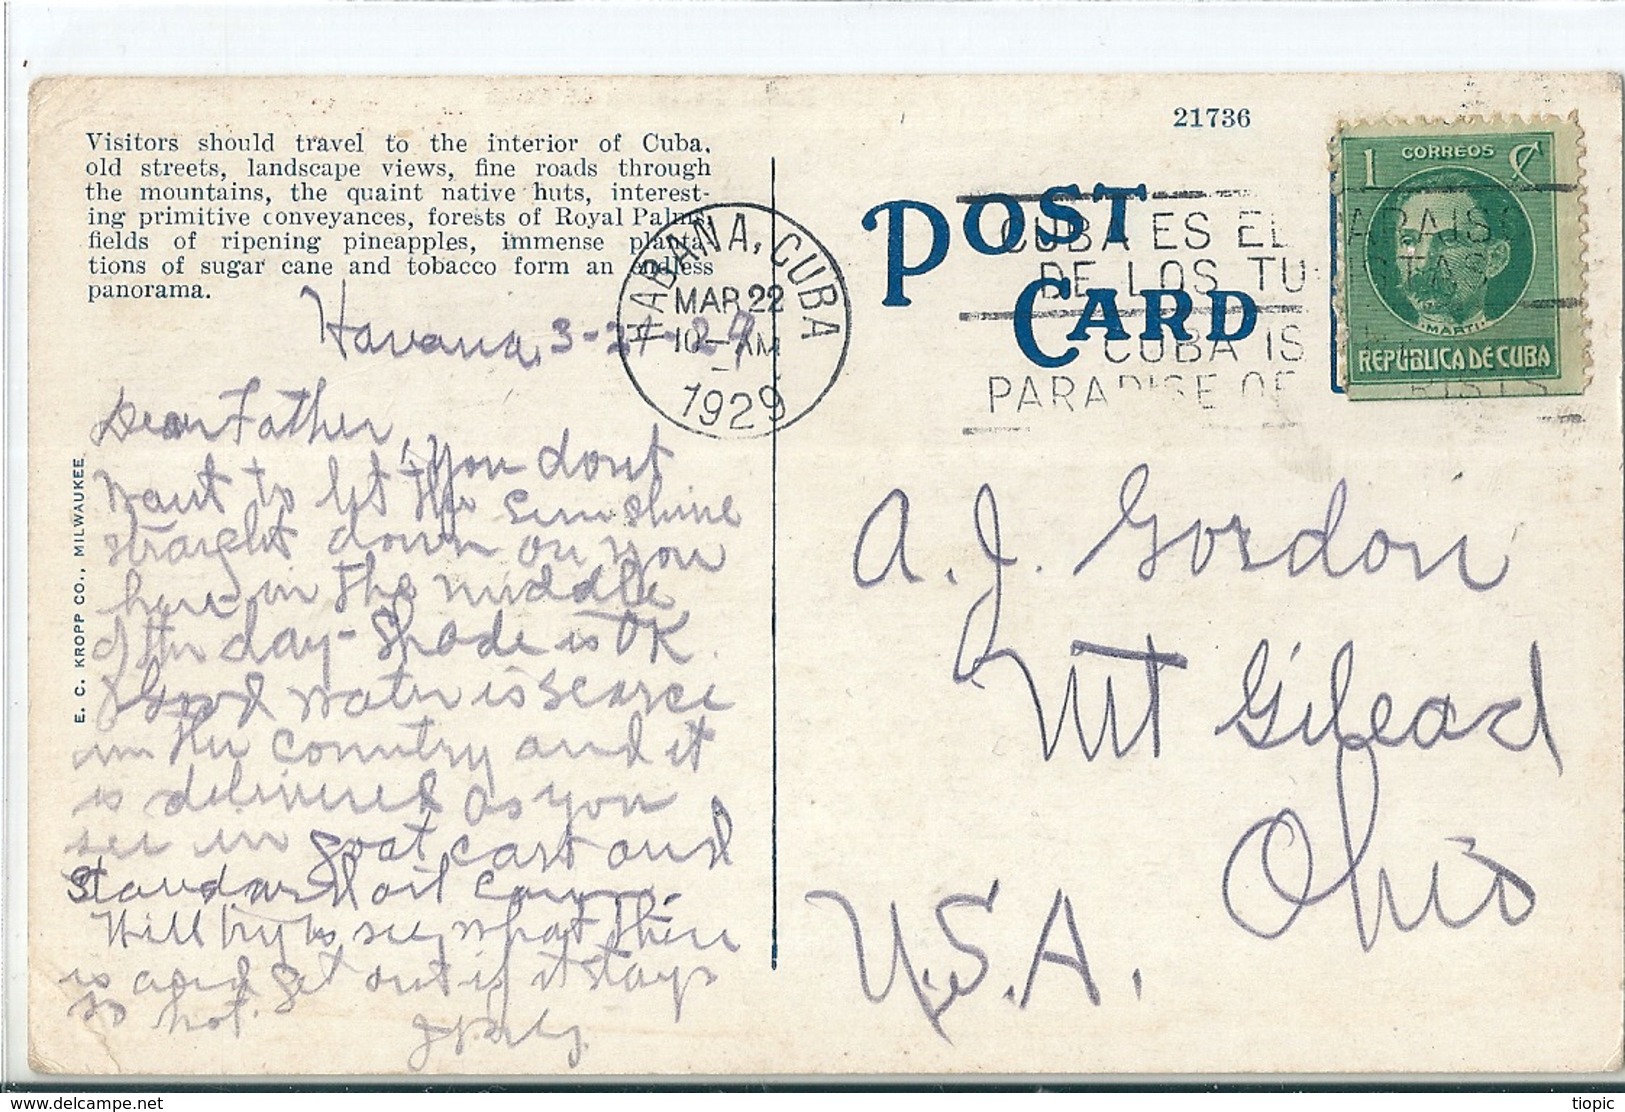 21736
Visitors should travel to the interior of Cuba.
old streets, landscape views, fine roads through
the mountains, the quaint native huts, interest-
ing primitive conveyances, forests of Royal Palms,
fields of ripening pineapples, immense planta-
tions of sugar cane and tobacco form an endless
panorama.
POST
CARD
HABANA, CUBA
MAR 22
10-AM
1929
CUBA ES EL PARAISO
DE LOS TURISTAS
CUBA IS THE
PARADISE OF TOURISTS
1 CORREOS C
MARTI
REPUBLICA DE CUBA
Havana, 3-21-29
Dear Father, you dont
want to let the sunshine
straight down on you
here in the middle
of the day - Shade is OK.
Good water is scarce
in the country and it
is delivered as you
see in goat cart and
Standard oil cans.
Will try to see what there
is and get out if it stays
so hot.
A. J. Gordon
Mt Gilead
Ohio
U.S.A.
E. C. KROPP CO., MILWAUKEE
http://www.delcampe.net
tiopic